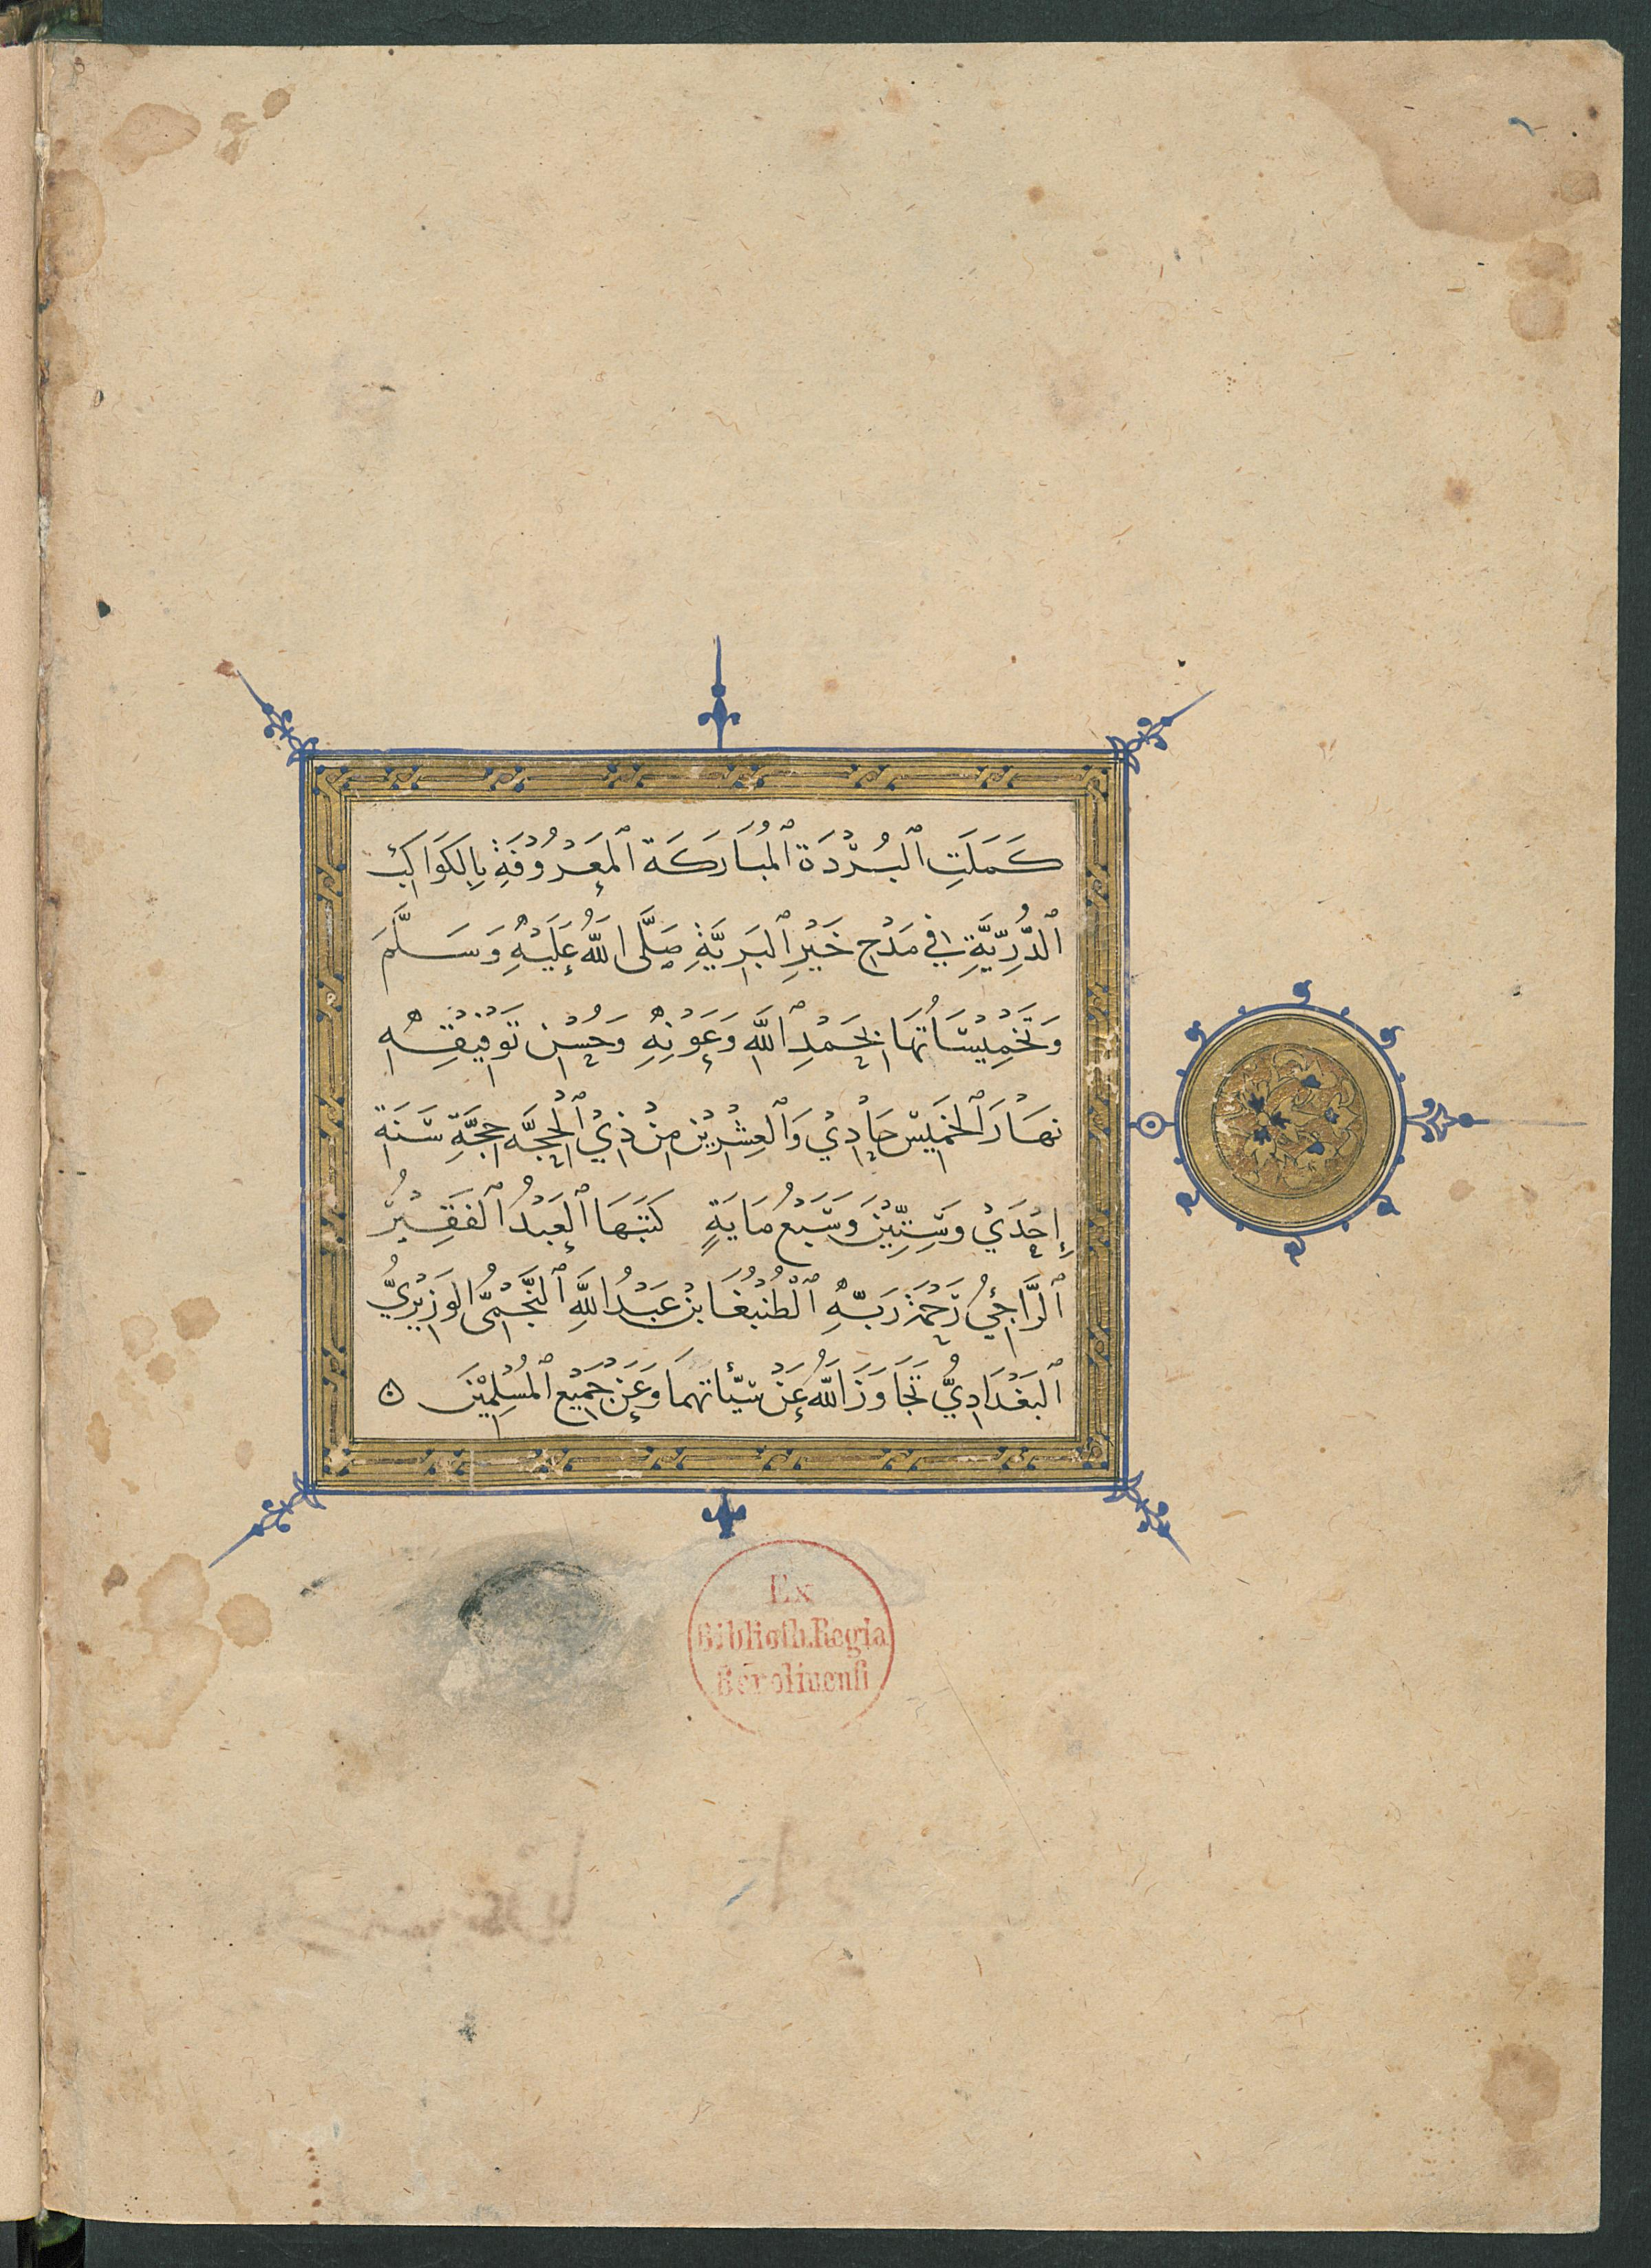 كَمَلَتِ ٱلبُرْدَة ٱلمُبَارَكَة ٱلمَعْرُوْفَةِ بِالكَوَاكِبِ
ٱلدُّرِّيَّةِ فِي مَدْحِ خَيْرِ ٱلبَرِيَّةِ صَلَّى اللَّهُ عَلَيْهِ وَسَلَّمَ
وَتَخْمِيْسَاتُهَا بِحَمْدِ ٱللَّهِ وَعَوْنِهِ وَحُسْنِ تَوْفِيْقِهِ
نهَارَ ٱلخَمَيِسْ حَادِيْ وَٱلعِشْرِيْن مِنْ ذِيْ ٱلحِجَّه حِجَّةِ سَنَة
إِحْدَيْ وَسِتِّيْنَ وَسَبْعُ مَايَةٍ كَتَبَهَا ٱلعَبْدُ ٱلفَقِيْرُ
ٱلرَّاجِيْ رَحْمَةَ رَبِّهِ ٱلْطُنْبُغَا بن عَبْدُ اللَّهِ ٱلنَّجْمِيُّ الوَزِيْرِيُّ
ٱلبَغْدَادِيُّ تَجَاوَزَ اللَّهُ عَنْ سَيّئاتهمَا وَعَنْ جَمِيْعِ ٱلمُسْلِمِيْنَ
Ex
Biblioth. Regia
Berolinensi